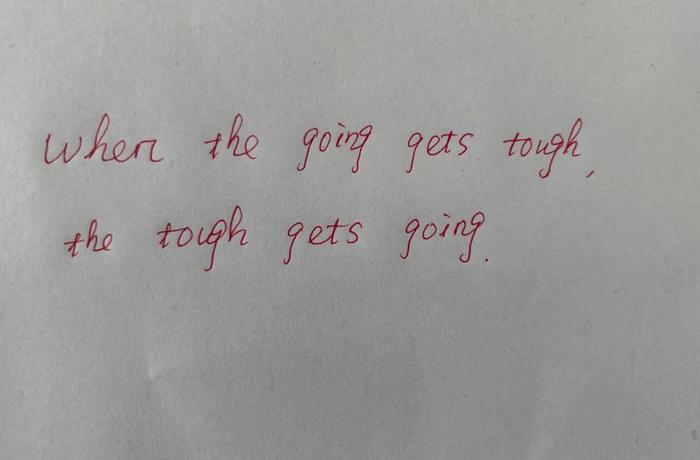 When the going gets tough,
the tough gets going.